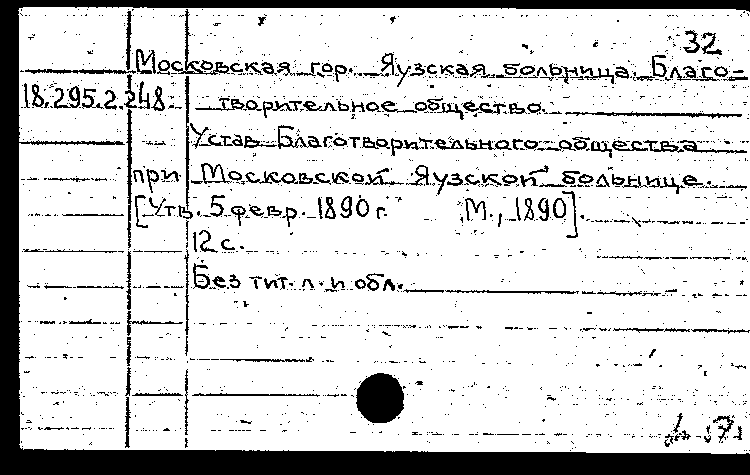 32
Московская гор. Яузская больница. Благо-
18.295.2.248. творительное общество.
Устав Благотворительного общества
при Московской Яузской больнице.
[Утв. 5 февр. 1890 г. М., 1890].
12 с.
Без тит. л. и обл.